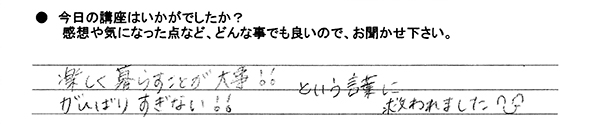 ● 今日の講座はいかがでしたか？
感想や気になった点など、どんな事でも良いので、お聞かせ下さい。
楽しく暮らすことが大事!!
がんばりすぎない!!
という言葉に
救われました